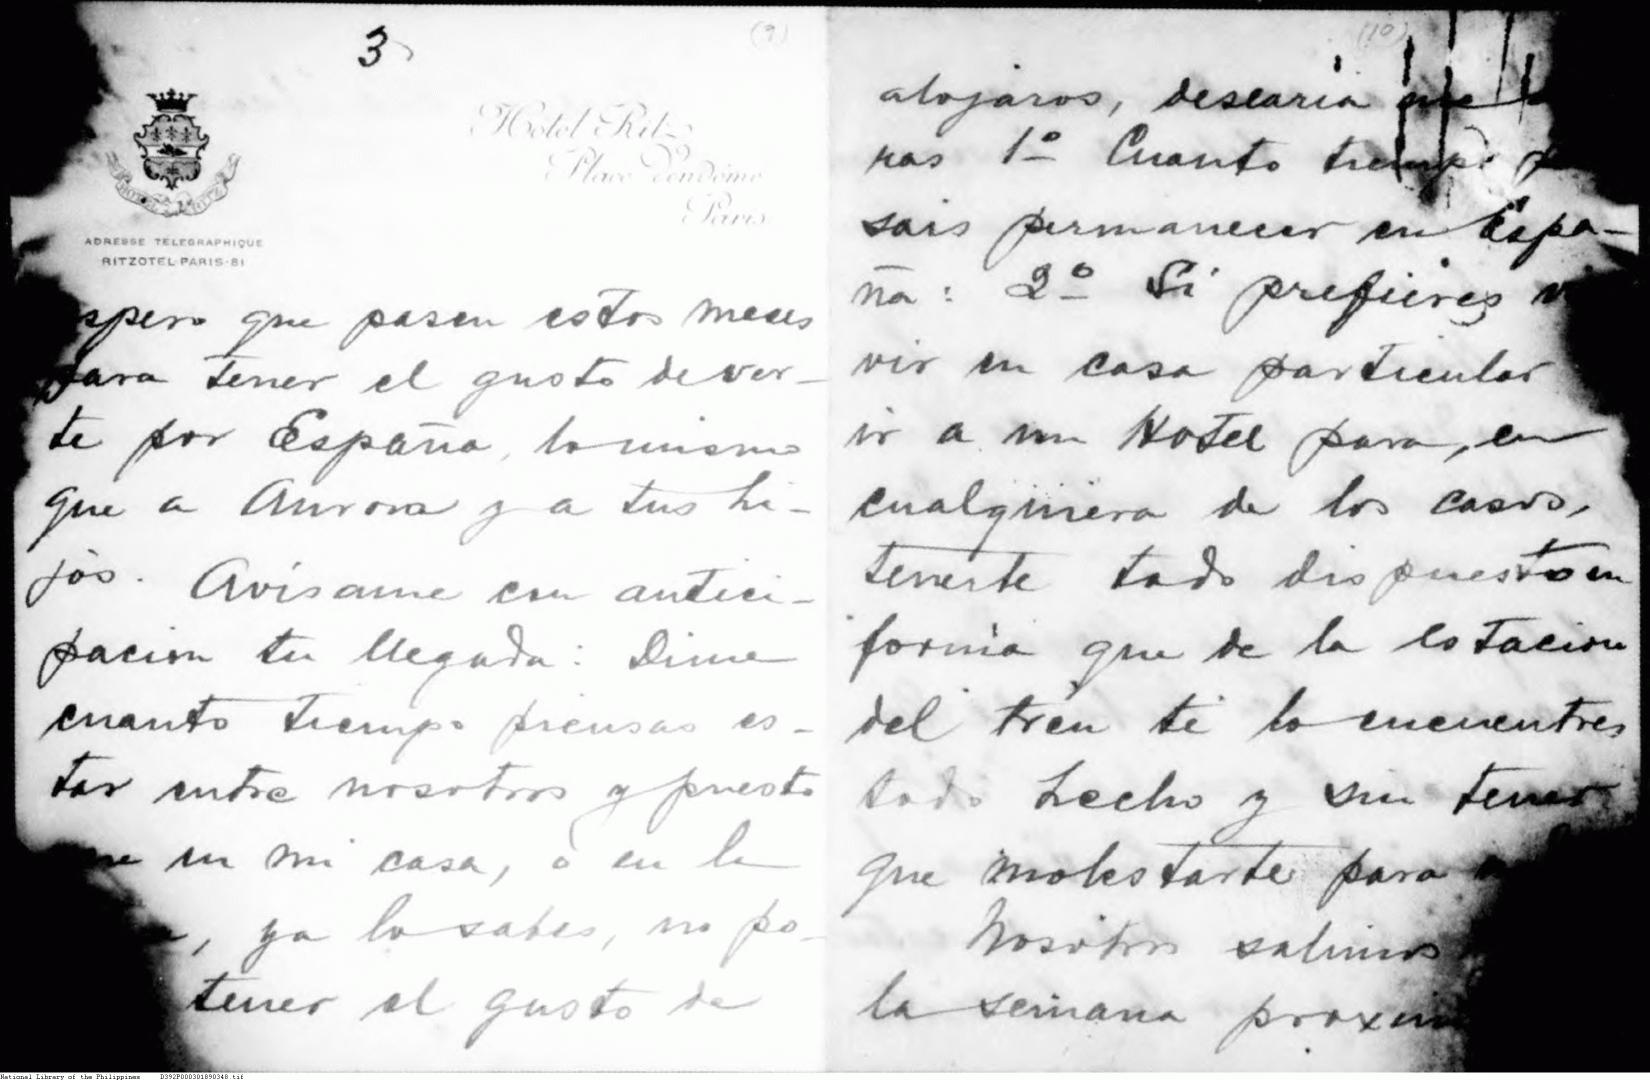 3
(9)
Hotel Ritz
Place Vendôme
Paris
HOTEL RITZ
ADRESSE TÉLÉGRAPHIQUE
RITZOTEL-PARIS-81
spero que pasen estos meses
para tener el gusto de ver-
te por España, lo mismo
que a Aurora y a tus hi-
jos. Avísame con antici-
pacion tu llegada: Dime
cuanto tiempo piensas es-
tar entre nosotros y puesto
en mi casa, ó en la
, ya lo sabes, no po-
tener el gusto de
(10)
alojaros, desearia me
ras 1º Cuanto tiempo
sais permanecer en Espa-
ña: 2º Si prefieres vi
vir en casa particular
ir a un Hotel para, en
cualquiera de los casos,
tenerte todo dispuesto en
forma que de la estacion
del tren te lo encuentres
todo hecho y sin tener
que molestarte para
Nosotros salimos
la semana proxim
National Library of the Philippines D392P000301890348.tif